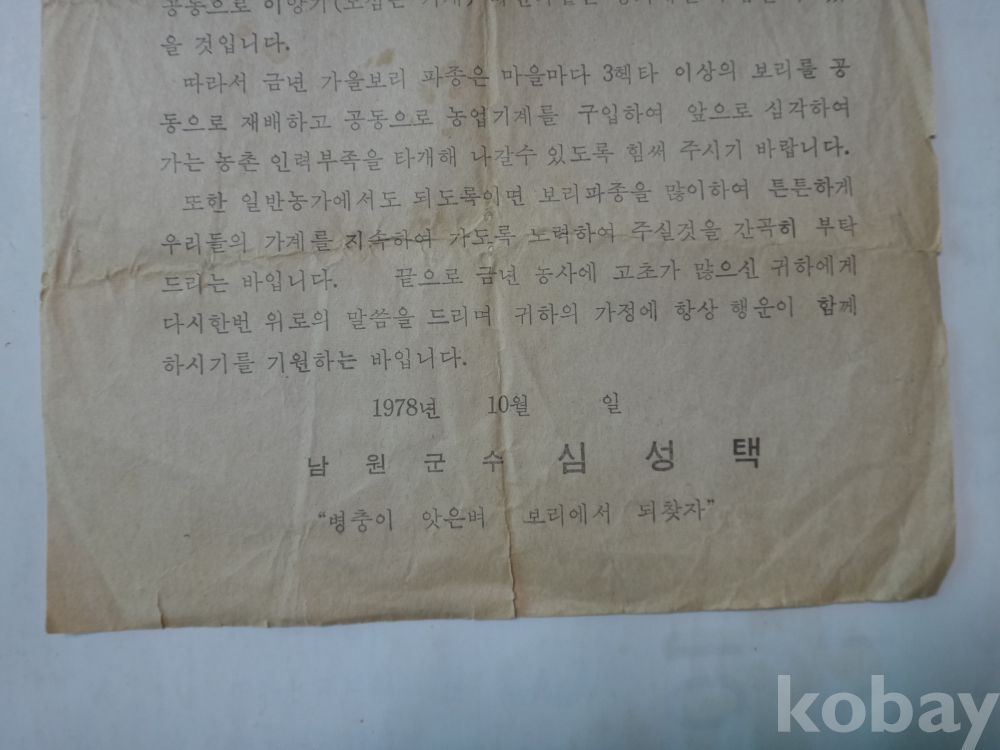 공동으로 이앙기(모심는 기계)
을 것입니다.
따라서 금년 가을보리 파종은 마을마다 3헥타 이상의 보리를 공
동으로 재배하고 공동으로 농업기계를 구입하여 앞으로 심각하여
가는 농촌 인력부족을 타개해 나갈수 있도록 힘써 주시기 바랍니다.
또한 일반농가에서도 되도록이면 보리파종을 많이하여 튼튼하게
우리들의 가계를 지속하여 가도록 노력하여 주실것을 간곡히 부탁
드리는 바입니다. 끝으로 금년 농사에 고초가 많으신 귀하에게
다시한번 위로의 말씀을 드리며 귀하의 가정에 항상 행운이 함께
하시기를 기원하는 바입니다.
1978년 10월 일
남원군수 심성택
“병충이 앗은벼 보리에서 되찾자”
kobay